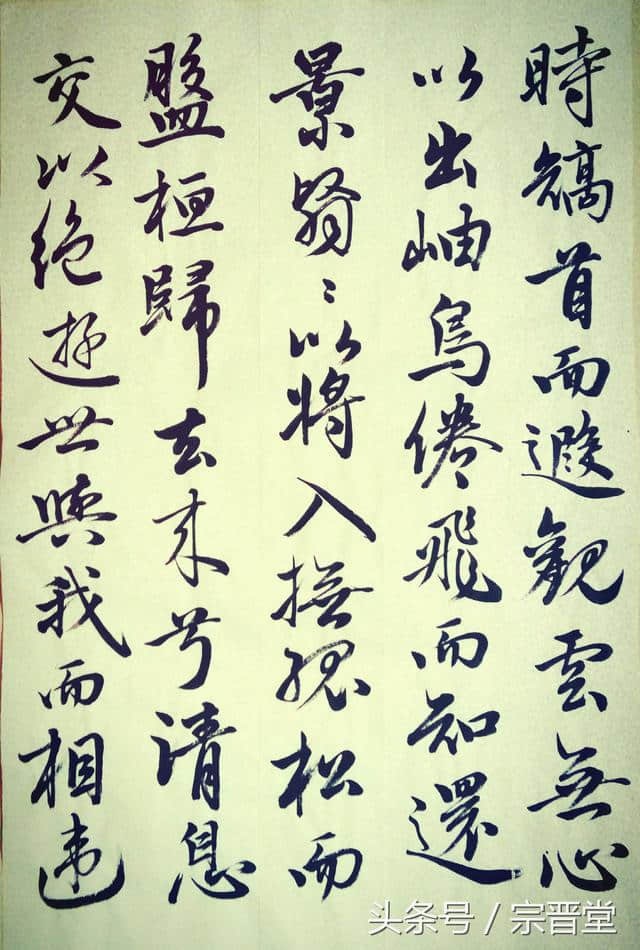 時矯首而遐觀雲無心
以出岫鳥倦飛而知還
景翳〻以將入撫孤松而
盤桓歸去来兮請息
交以絶遊世與我而相違
头条号 / 宗晋堂